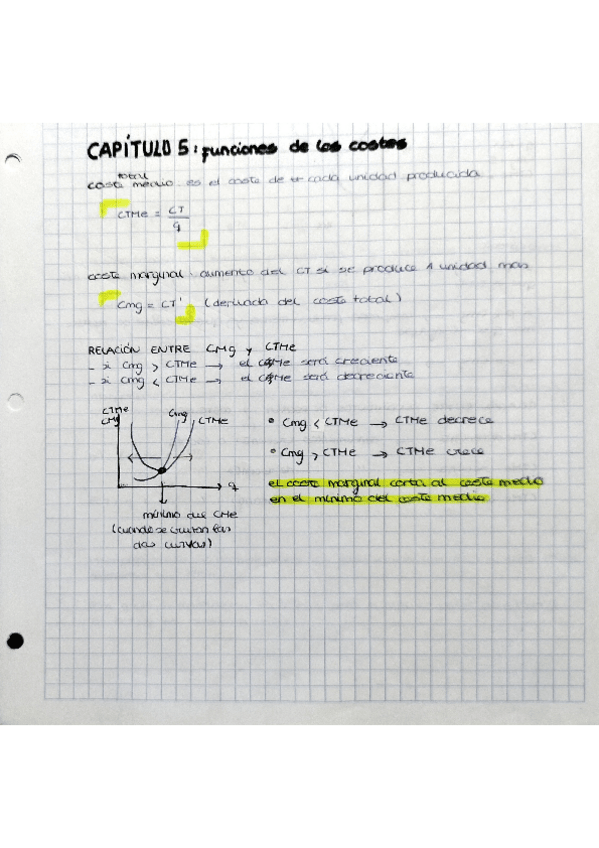 CAPÍTULO 5: funciones de los costes
total
coste medio: es el coste de cada unidad producida
CTMe = CT
q
coste marginal: aumento del CT si se produce 1 unidad mas
Cmg = CT' (derivada del coste total)
RELACIÓN ENTRE CMg y CTMe
- si Cmg > CTMe → el CTMe será creciente
- si Cmg < CTMe → el CTMe será decreciente
CTMe
CMg
Cmg
CTMe
q
mínimo del CMe
(cuando se cruzan las
dos curvas)
• Cmg < CTMe → CTMe decrece
• Cmg > CTMe → CTMe crece
el coste marginal corta al coste medio
en el mínimo del coste medio